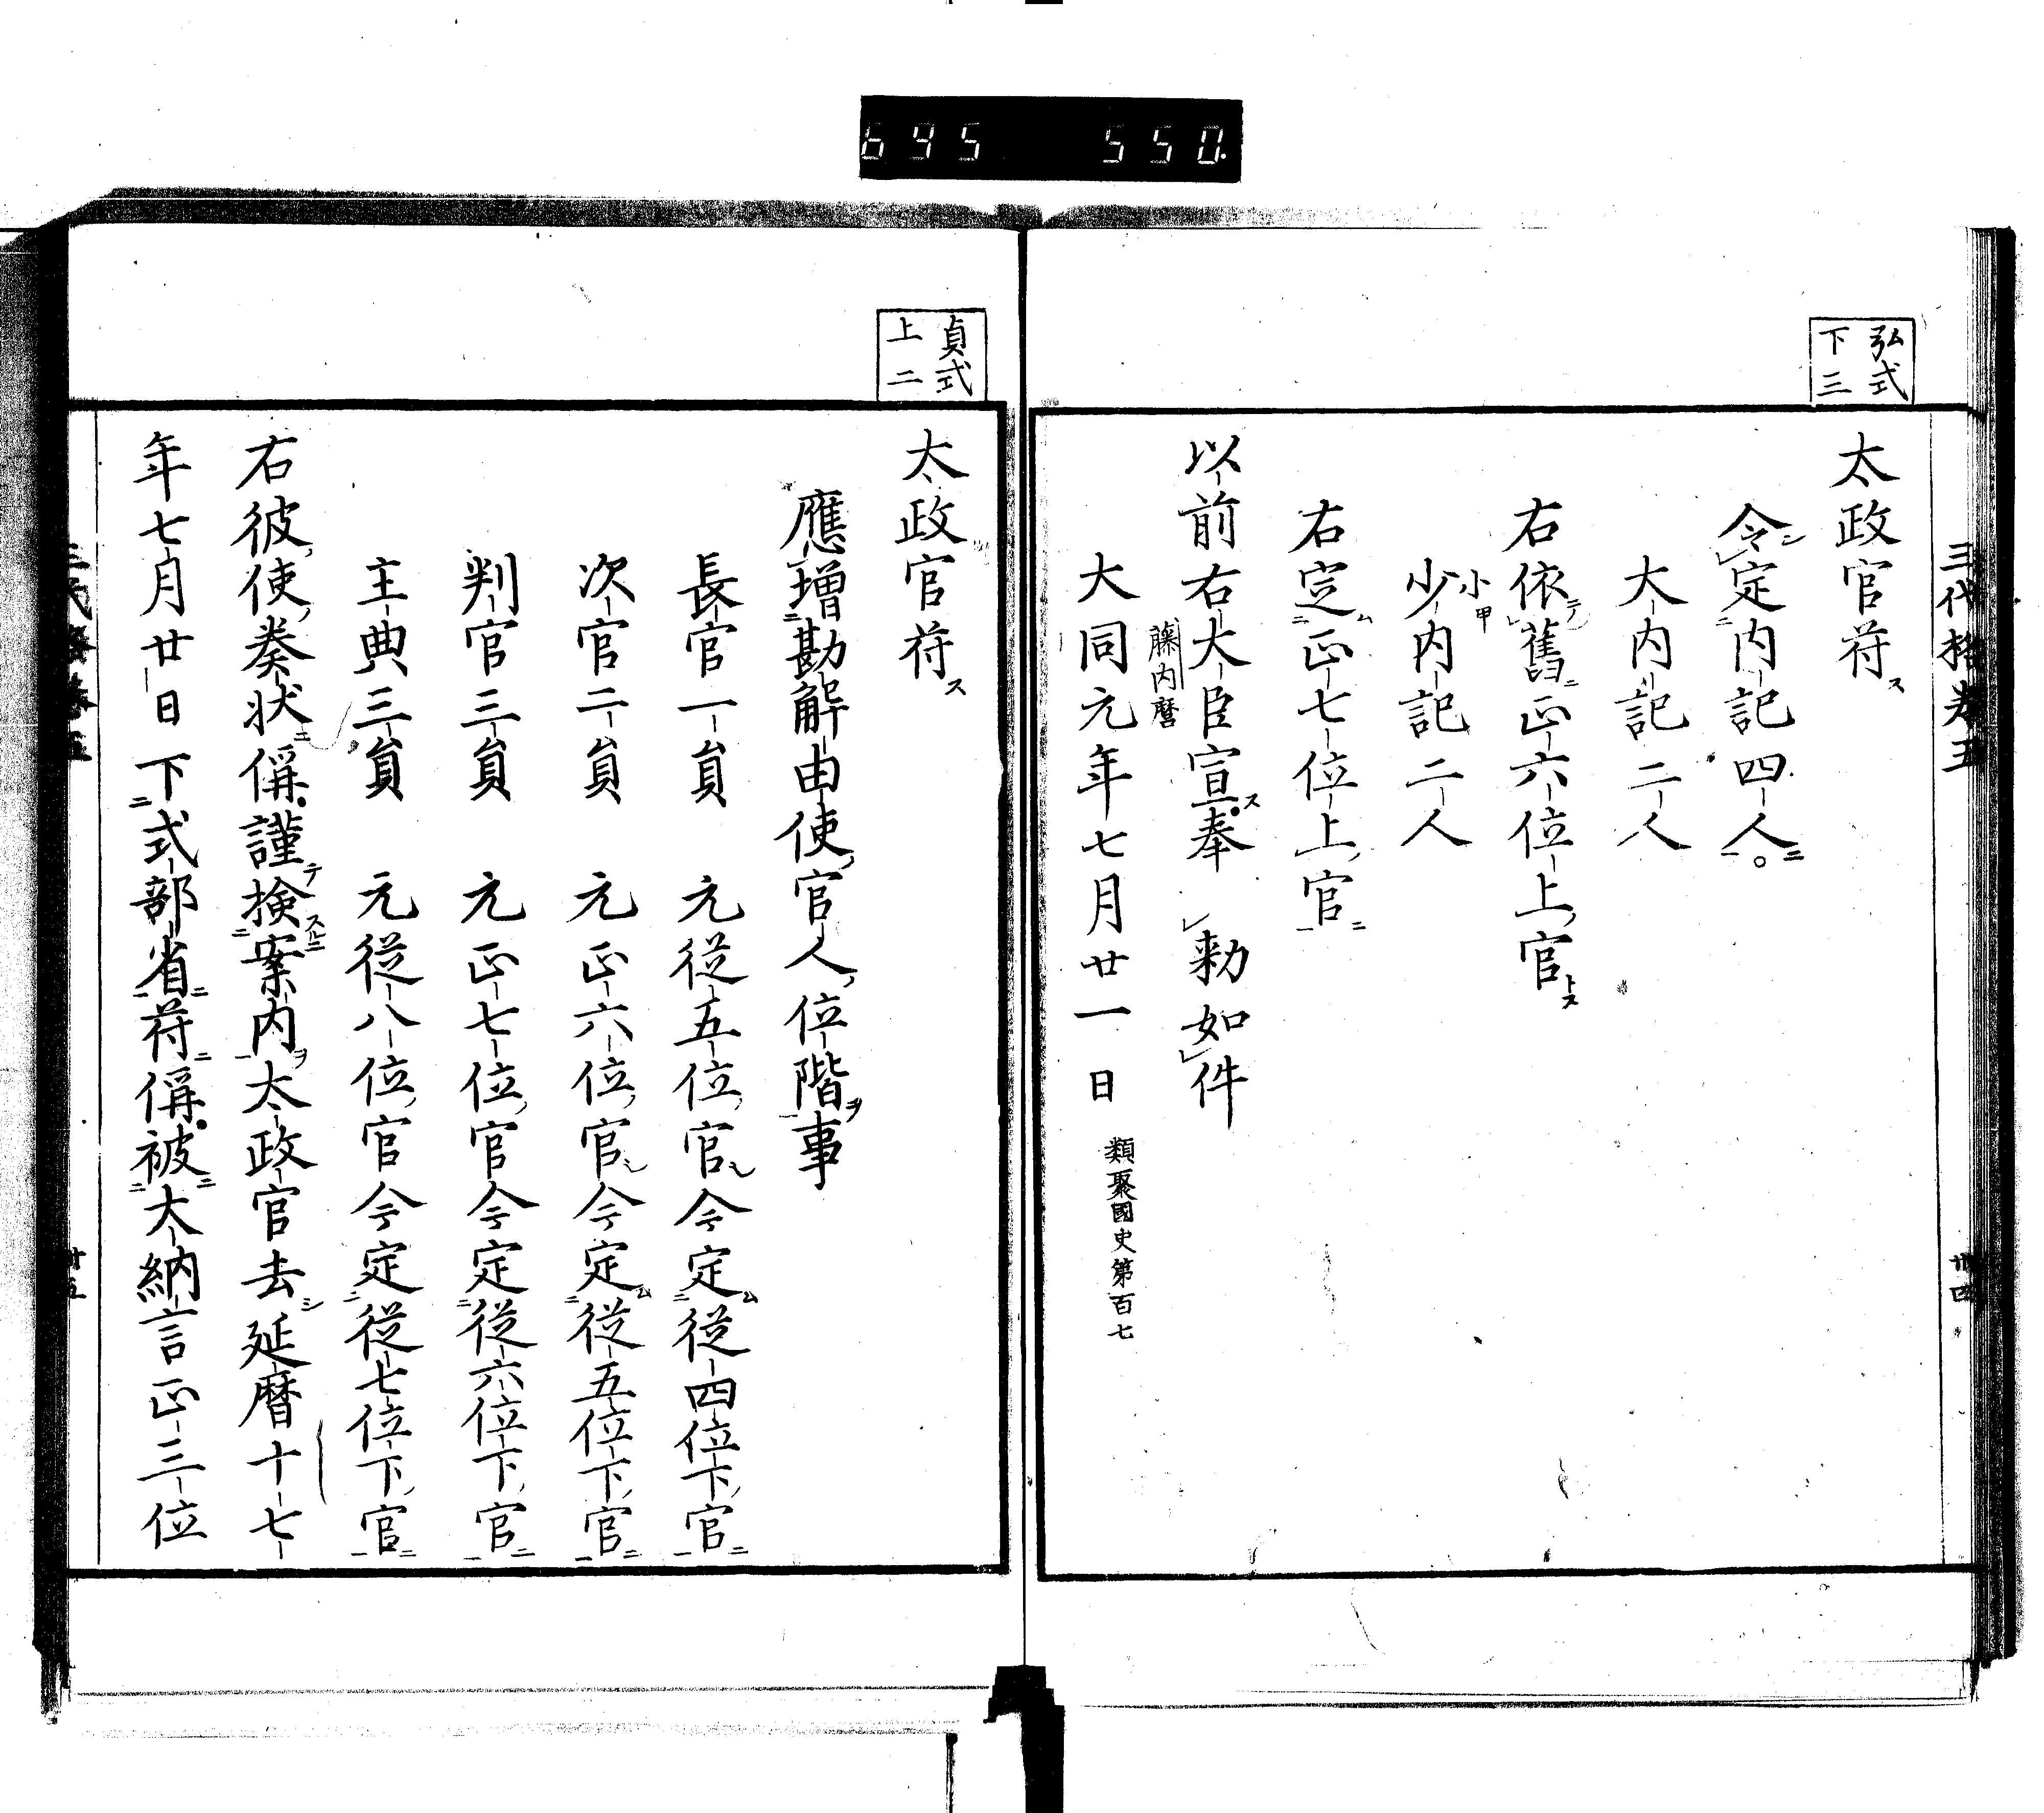 645 550.
三代格卷五 卅四
弘式
下三
太政官符ス
令定内記四人
大内記二人
右依舊正六位上官
少内記二人
小甲
右定正七位上官
以前右大臣宣奉 勅如件
藤内麿
大同元年七月廿一日 類聚國史第百七
貞式
上二
太政官符ス
應増勘解由使官人位階事
長官一負 元從五位官今定從四位下官
次官二負 元正六位官今定從五位下官
判官三負 元正七位官今定從六位下官
主典三負 元從八位官今定從七位下官
右彼使奏状偁謹検案内太政官去延暦十七
年七月廿日下式部省符偁被大納言正三位